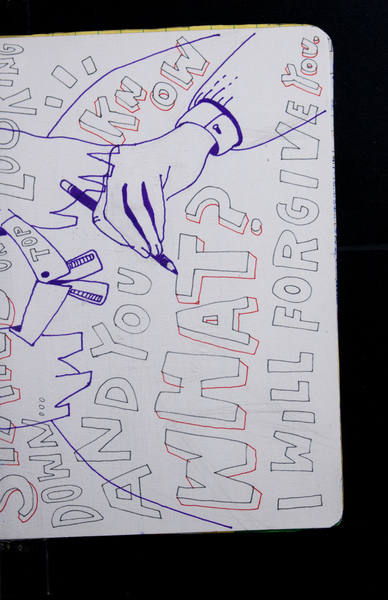 ON TOP LOOKING
DOWN...
AND YOU KNOW
WHAT?
I WILL FORGIVE YOU.